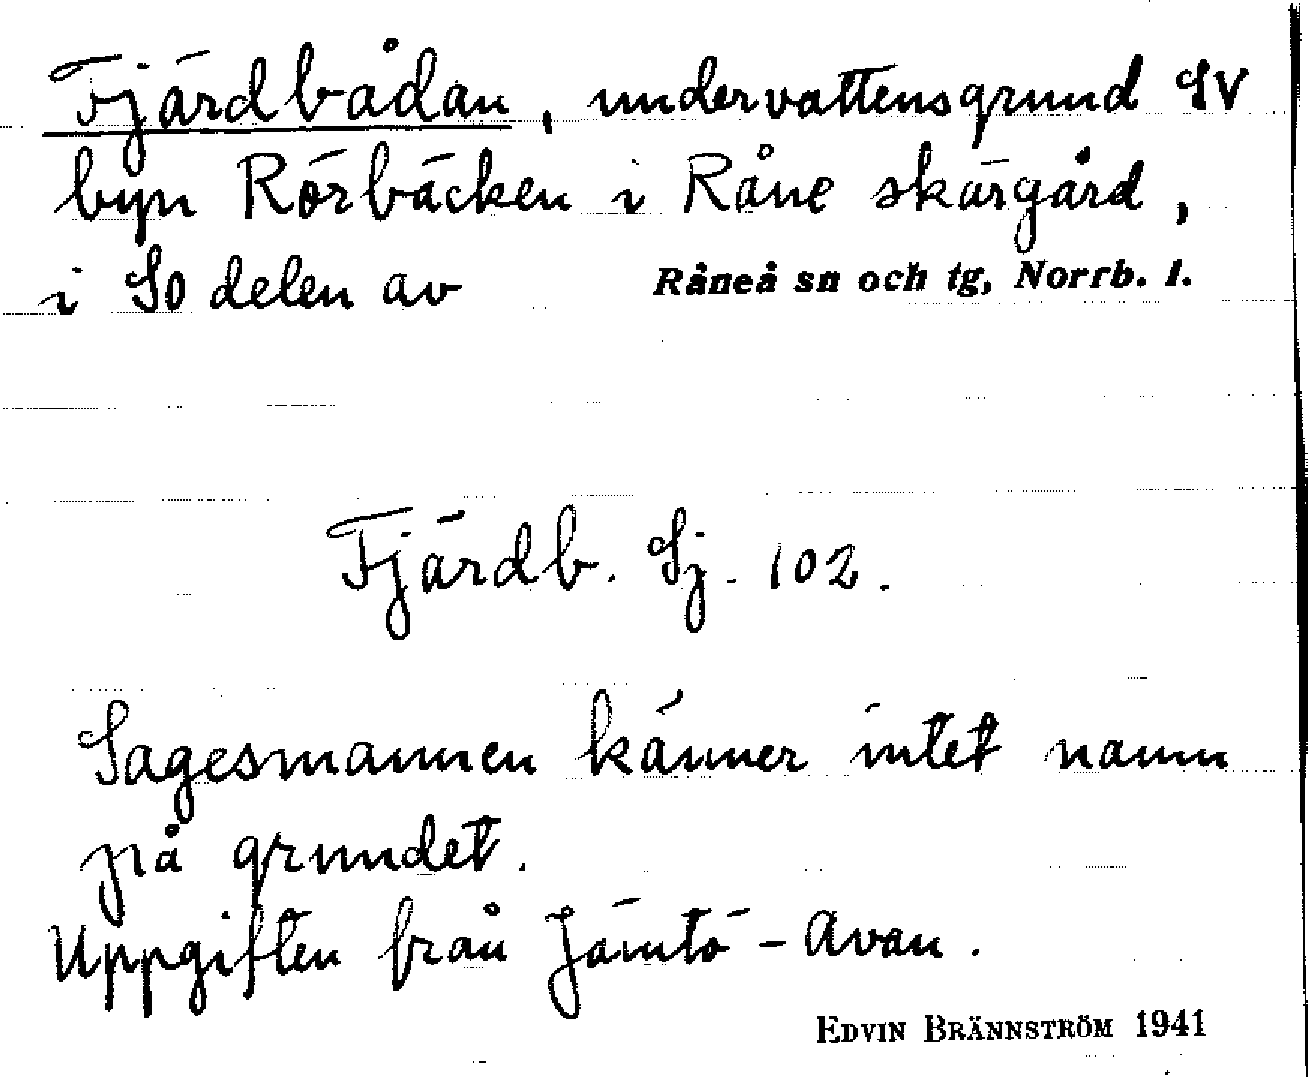 Fjärdbådan, undervattensgrund SV
byn Rörbäcken i Råne skärgård,
i So delen av Råneå sn och tg, Norrb. l.
Fjärdb. Sj. 102.
Sagesmannen känner intet namn
på grundet.
Uppgiften från Jämtö - Avan.
EDVIN BRÄNNSTRÖM 1941